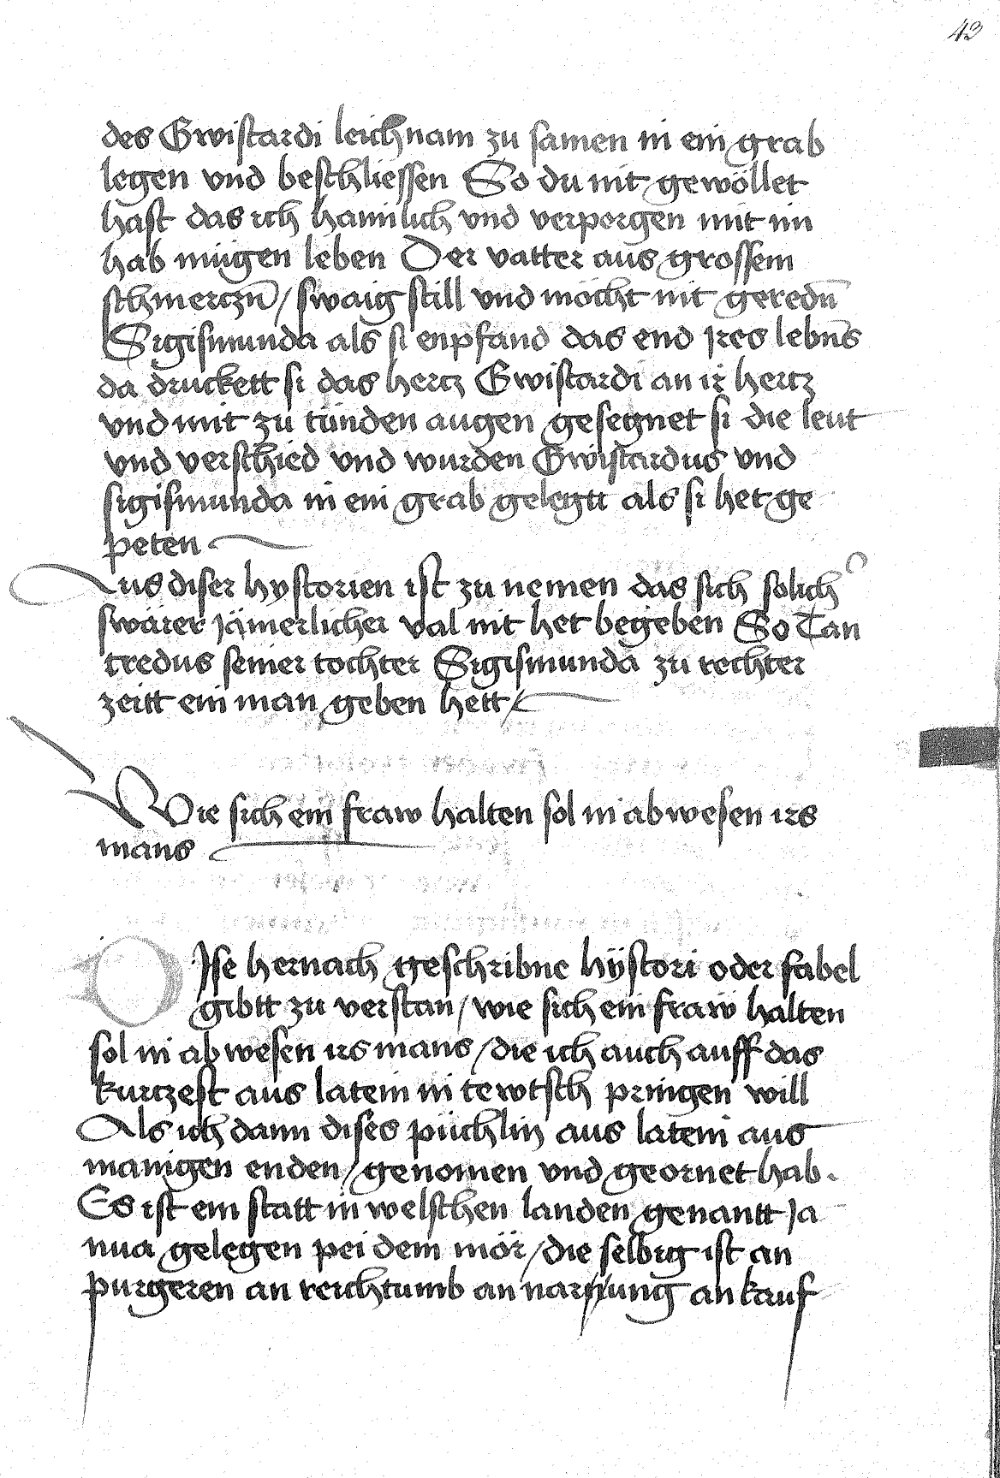 43
des Gwistardi leichnam zu samen in ein grab
legen vnd beschliessen So du nit gewöllet
hast das ich hamlich vnd verporgen mit im
hab mügen leben Der vatter aus grossem
schmerczn̄ / swaig still vnd möcht nit geredn̄
Sigismunda als si enpfand das end Jres lebn̄s
da druckett si das hertz Gwistardi an ir hertz
vnd mit zu tünden augen gesegnet si die leut
vnd verschied vnd wurden Gwistardus vnd
sigismunda in ein grab gelegtt als si het ge
peten
Aus diser hystorien ist zu nemen das sich solich
swärer Jämerlicher val nit het begeben So Tan
credus seiner tochter Sigismunda zu rechter
zeitt ein man geben hett /
Wie sich ein fraw halten sol in abwesen irs
mans
DJse hernach geschribne hÿstori oder fabel
gibtt zu verstan / wie sich ein fraw halten
sol in abwesen irs mans / die ich auch auff das
kurczest aus latein in tewtsch pringen will
Als ich dann dises püchlin aus latein aus
manigen enden / genomen vnd geornet hab.
Es ist ein statt in welschen landen genantt Ja
nua gelegen pei dem mör / die selbig ist an
purgeren an reichtumb an narung an kauf